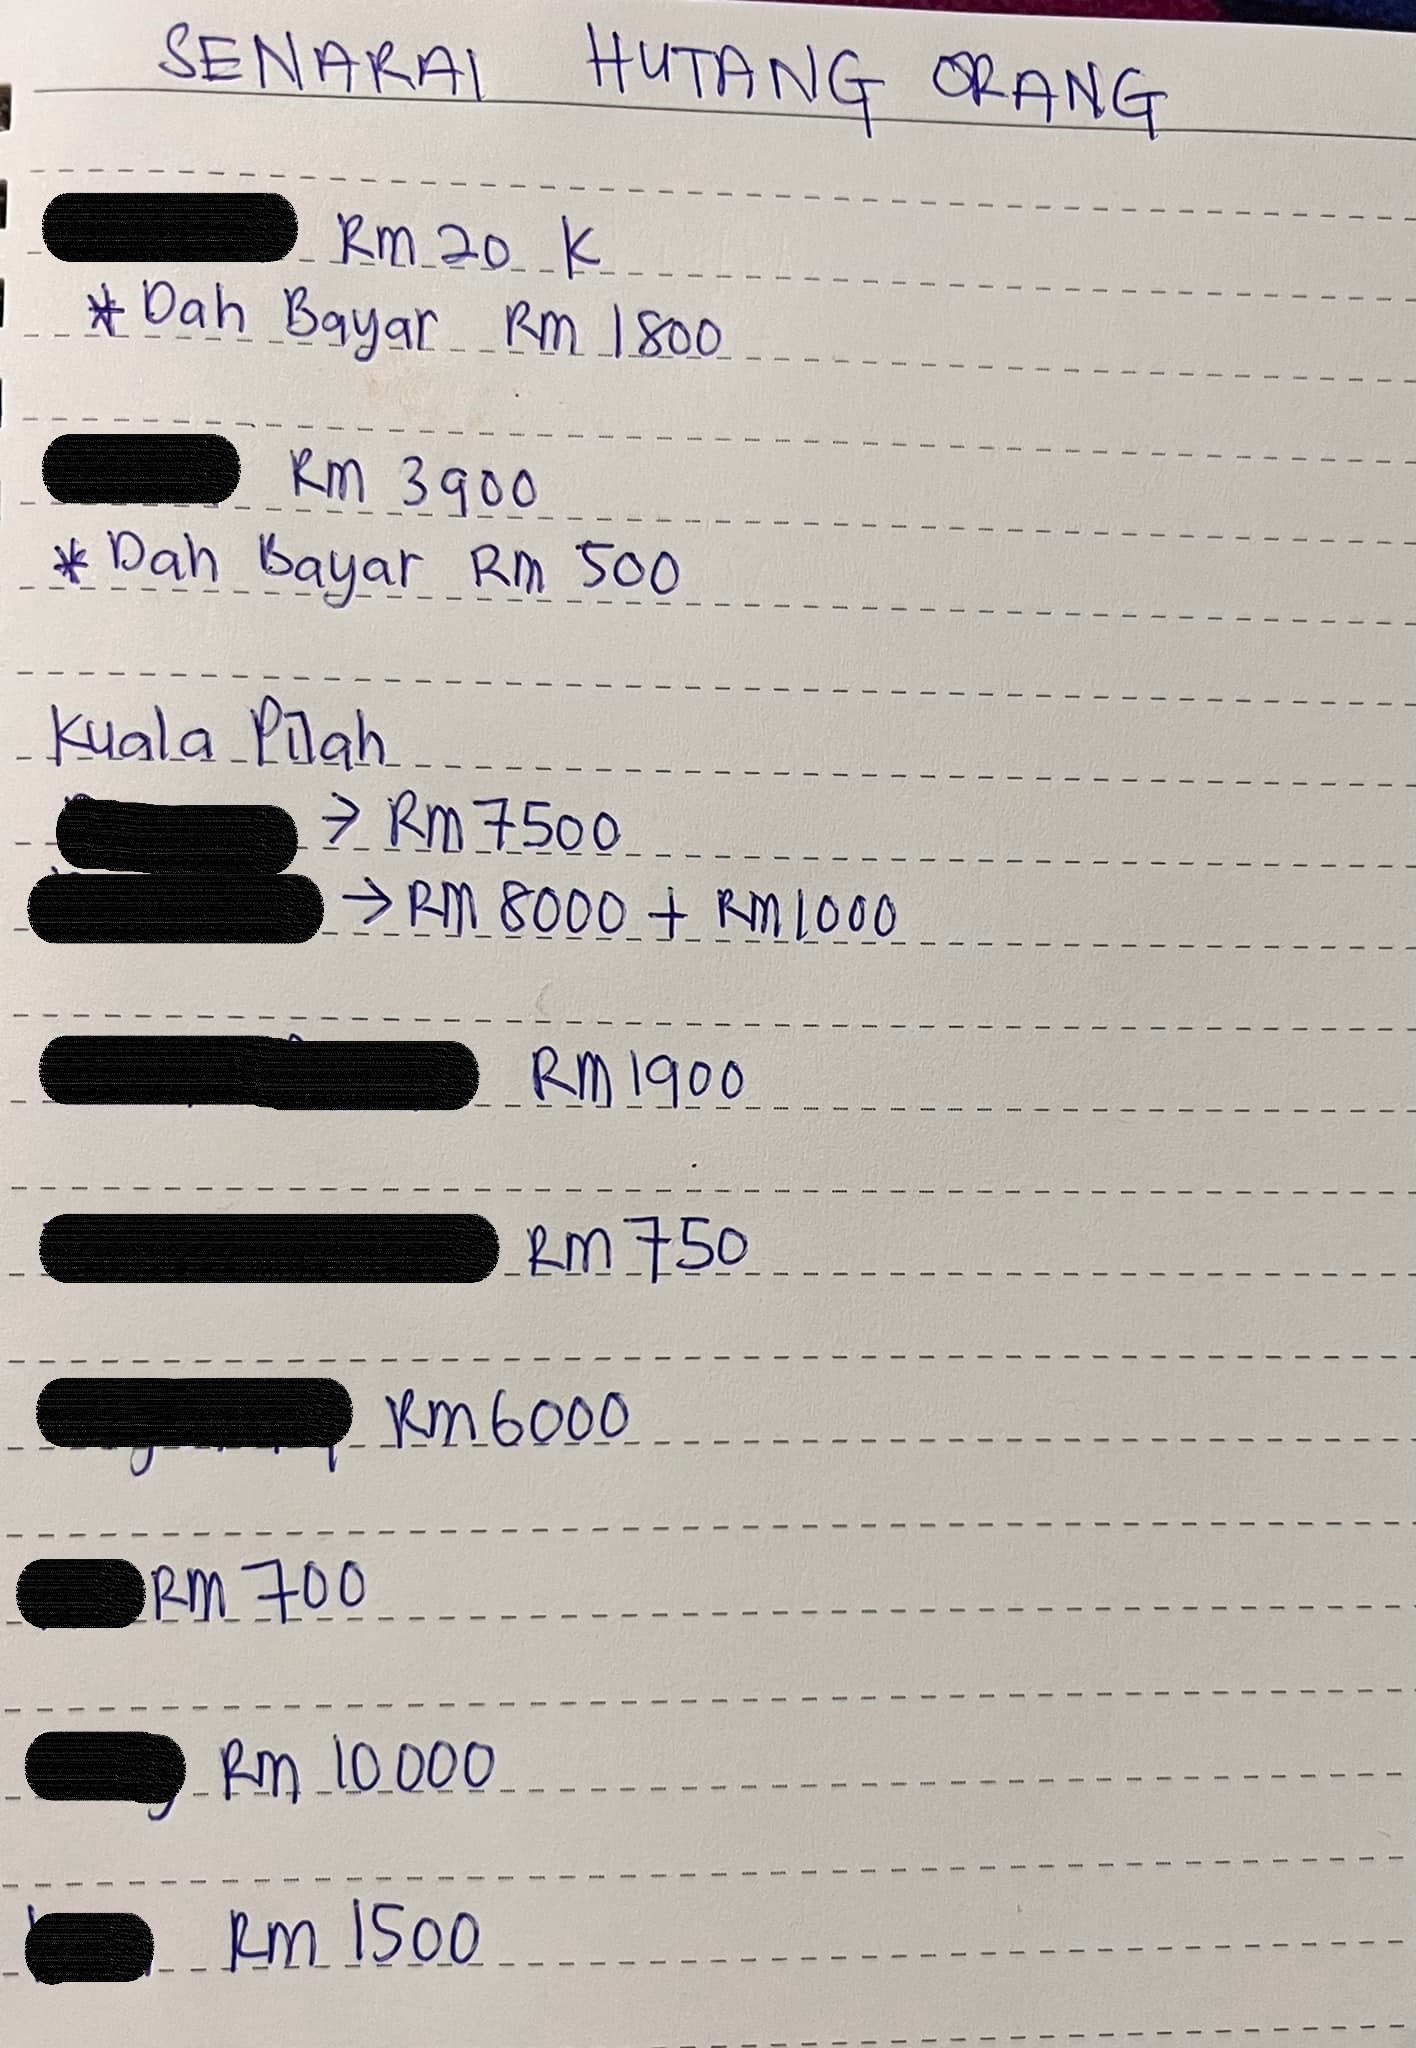 SENARAI HUTANG ORANG
Rm 20 K
* Dah Bayar Rm 1800
Rm 3900
* Dah Bayar Rm 500
Kuala Pilah
→ Rm 7500
→ RM 8000 + RM 1000
RM 1900
Rm 750
Rm 6000
RM 700
Rm 10000
Rm 1500